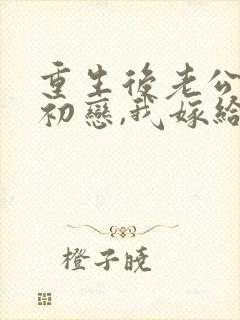 重生後老公
初戀,我嫁給
橙子曉